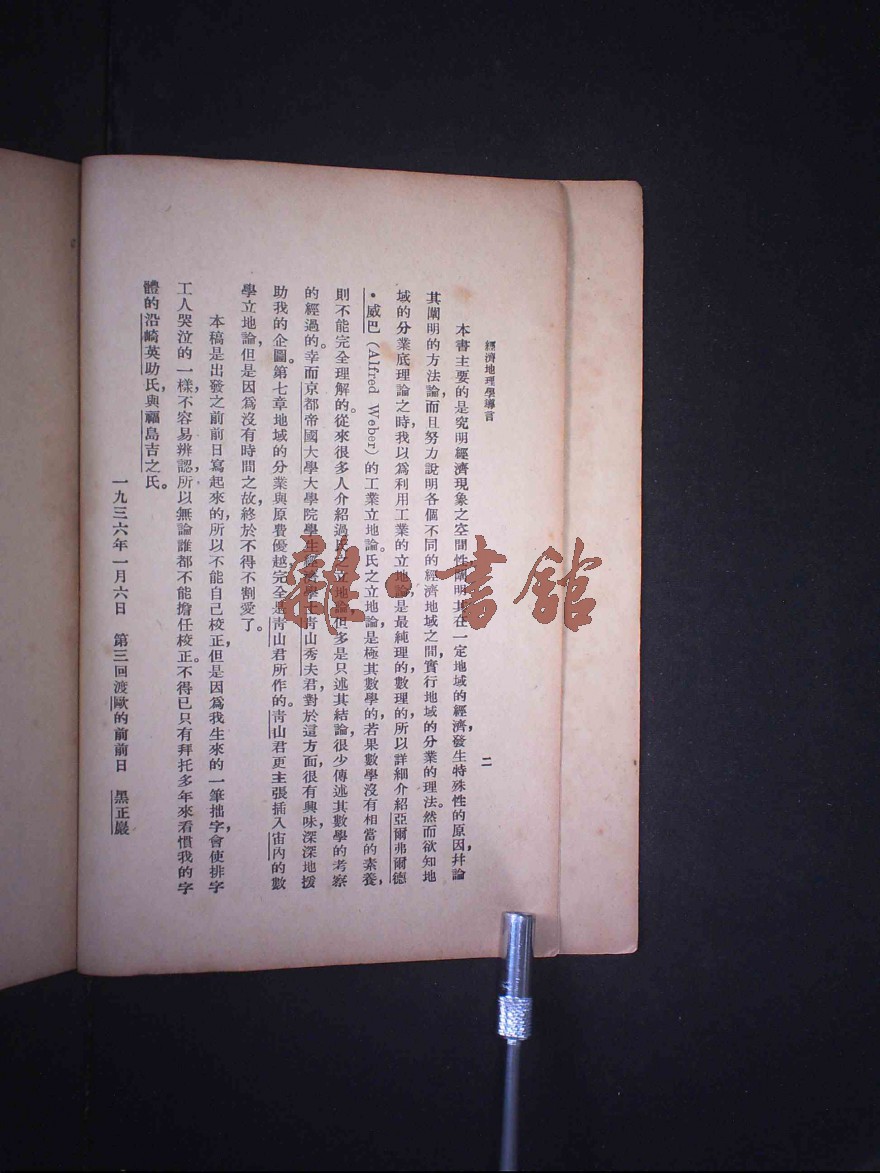 經濟地理學導言
二
本書主要的是究明經濟現象之空間性,闡明其在一定地域的經濟,發生特殊性的原因,幷論
其闡明的方法論,而且努力說明各個不同的經濟地域之間,實行地域的分業的理法。然而欲知地
域的分業底理論之時,我以爲利用工業的立地論,是最純理的,數理的,所以詳細介紹亞爾弗爾德
•威巴(Alfred Weber)的工業立地論。氏之立地論,是極其數學的,若果數學沒有相當的素養,
則不能完全理解的。從來很多人介紹過氏之立地論,但多是只述其結論,很少傳述其數學的考察
的經過的。幸而京都帝國大學大學院學生經濟學士靑山秀夫君,對於這方面,很有興味,深深地援
助我的企圖。第七章地域的分業與原費優越,完全是靑山君所作的。靑山君更主張插入宙內的數
學立地論,但是因爲沒有時間之故,終於不得不割愛了。
本稿是出發之前前日寫起來的,所以不能自己校正,但是因爲我生來的一筆拙字,會使排字
工人哭泣的一樣,不容易辨認,所以無論誰都不能擔任校正。不得已只有拜托多年來看慣我的字
體的沿崎英助氏,與福島吉之氏。
一九三六年一月六日 第三回渡歐的前前日 黑正巖
雜·書館